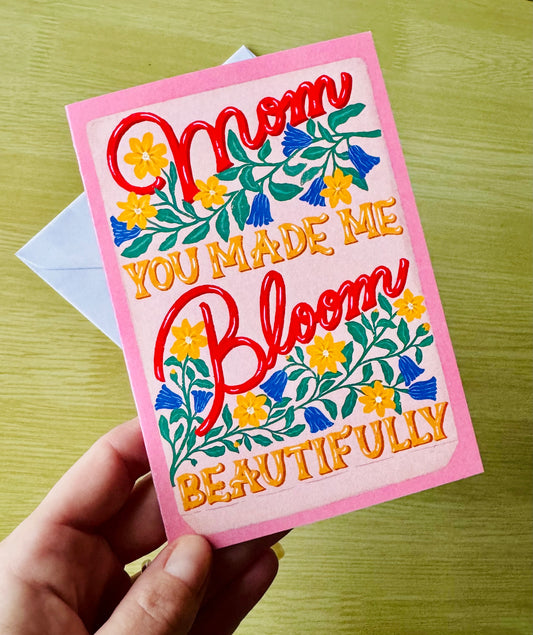 Mom
YOU MADE ME
Bloom
BEAUTIFULLY